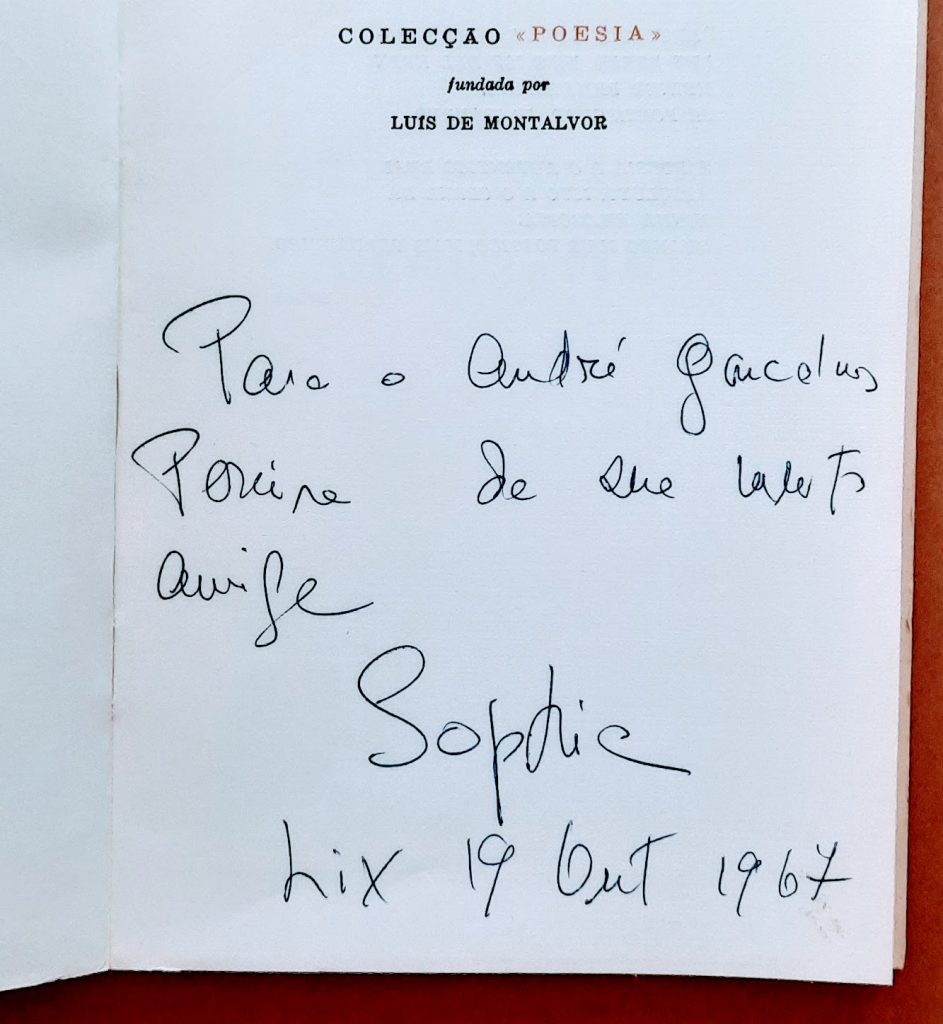 COLECÇÃO «POESIA»
fundada por
LUÍS DE MONTALVOR
Para o André Gonçalves
Pereira de sua muito
amiga
Sophia
Lix 19 Out 1967